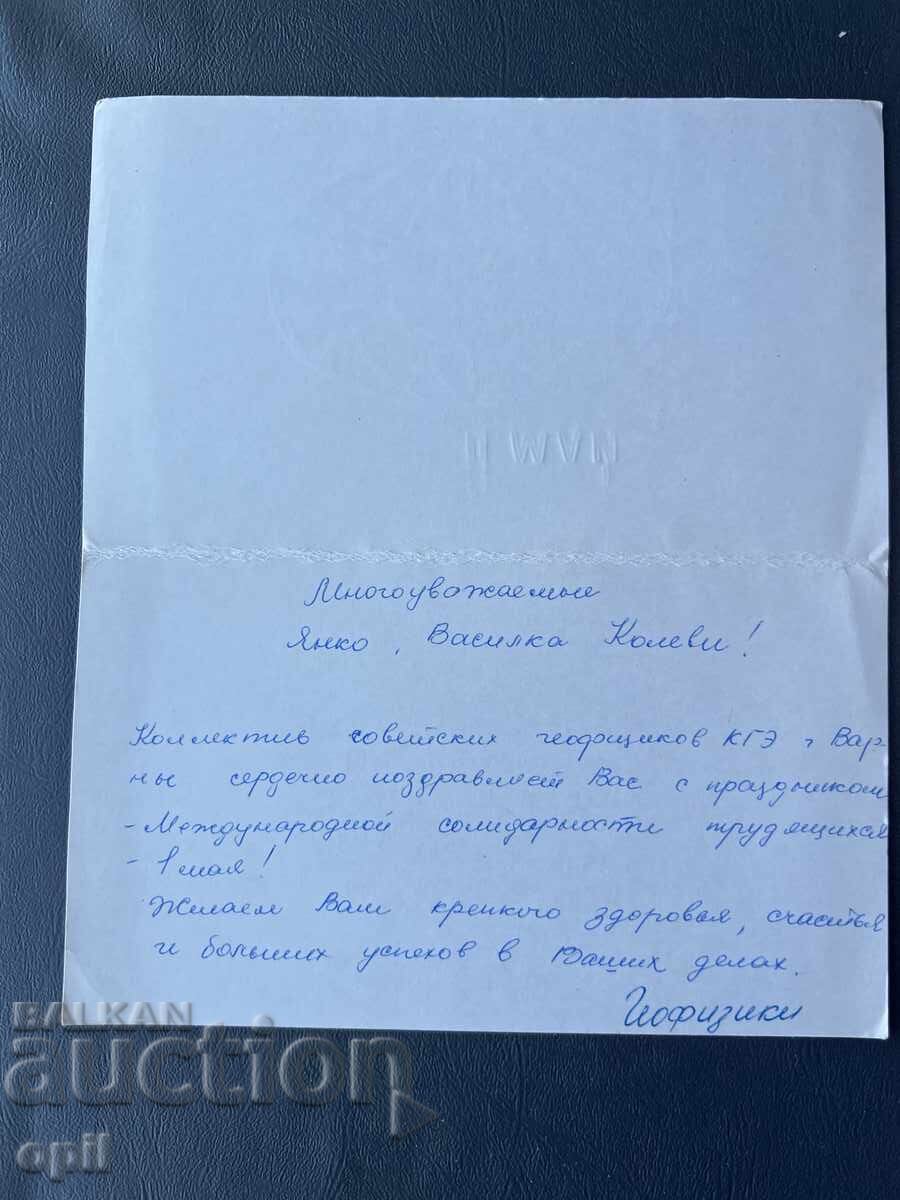 Многоуважаемые
Янко, Василка Колеви!
Коллектив советских геофизиков КГЭ г Вар-
ны сердечно поздравляет Вас с праздником
- Международной солидарности трудящихся
- 1 мая!
Желаем Вам крепкого здоровья, счастья
и больших успехов в Ваших делах.
Геофизики
BALKAN
auction
opil